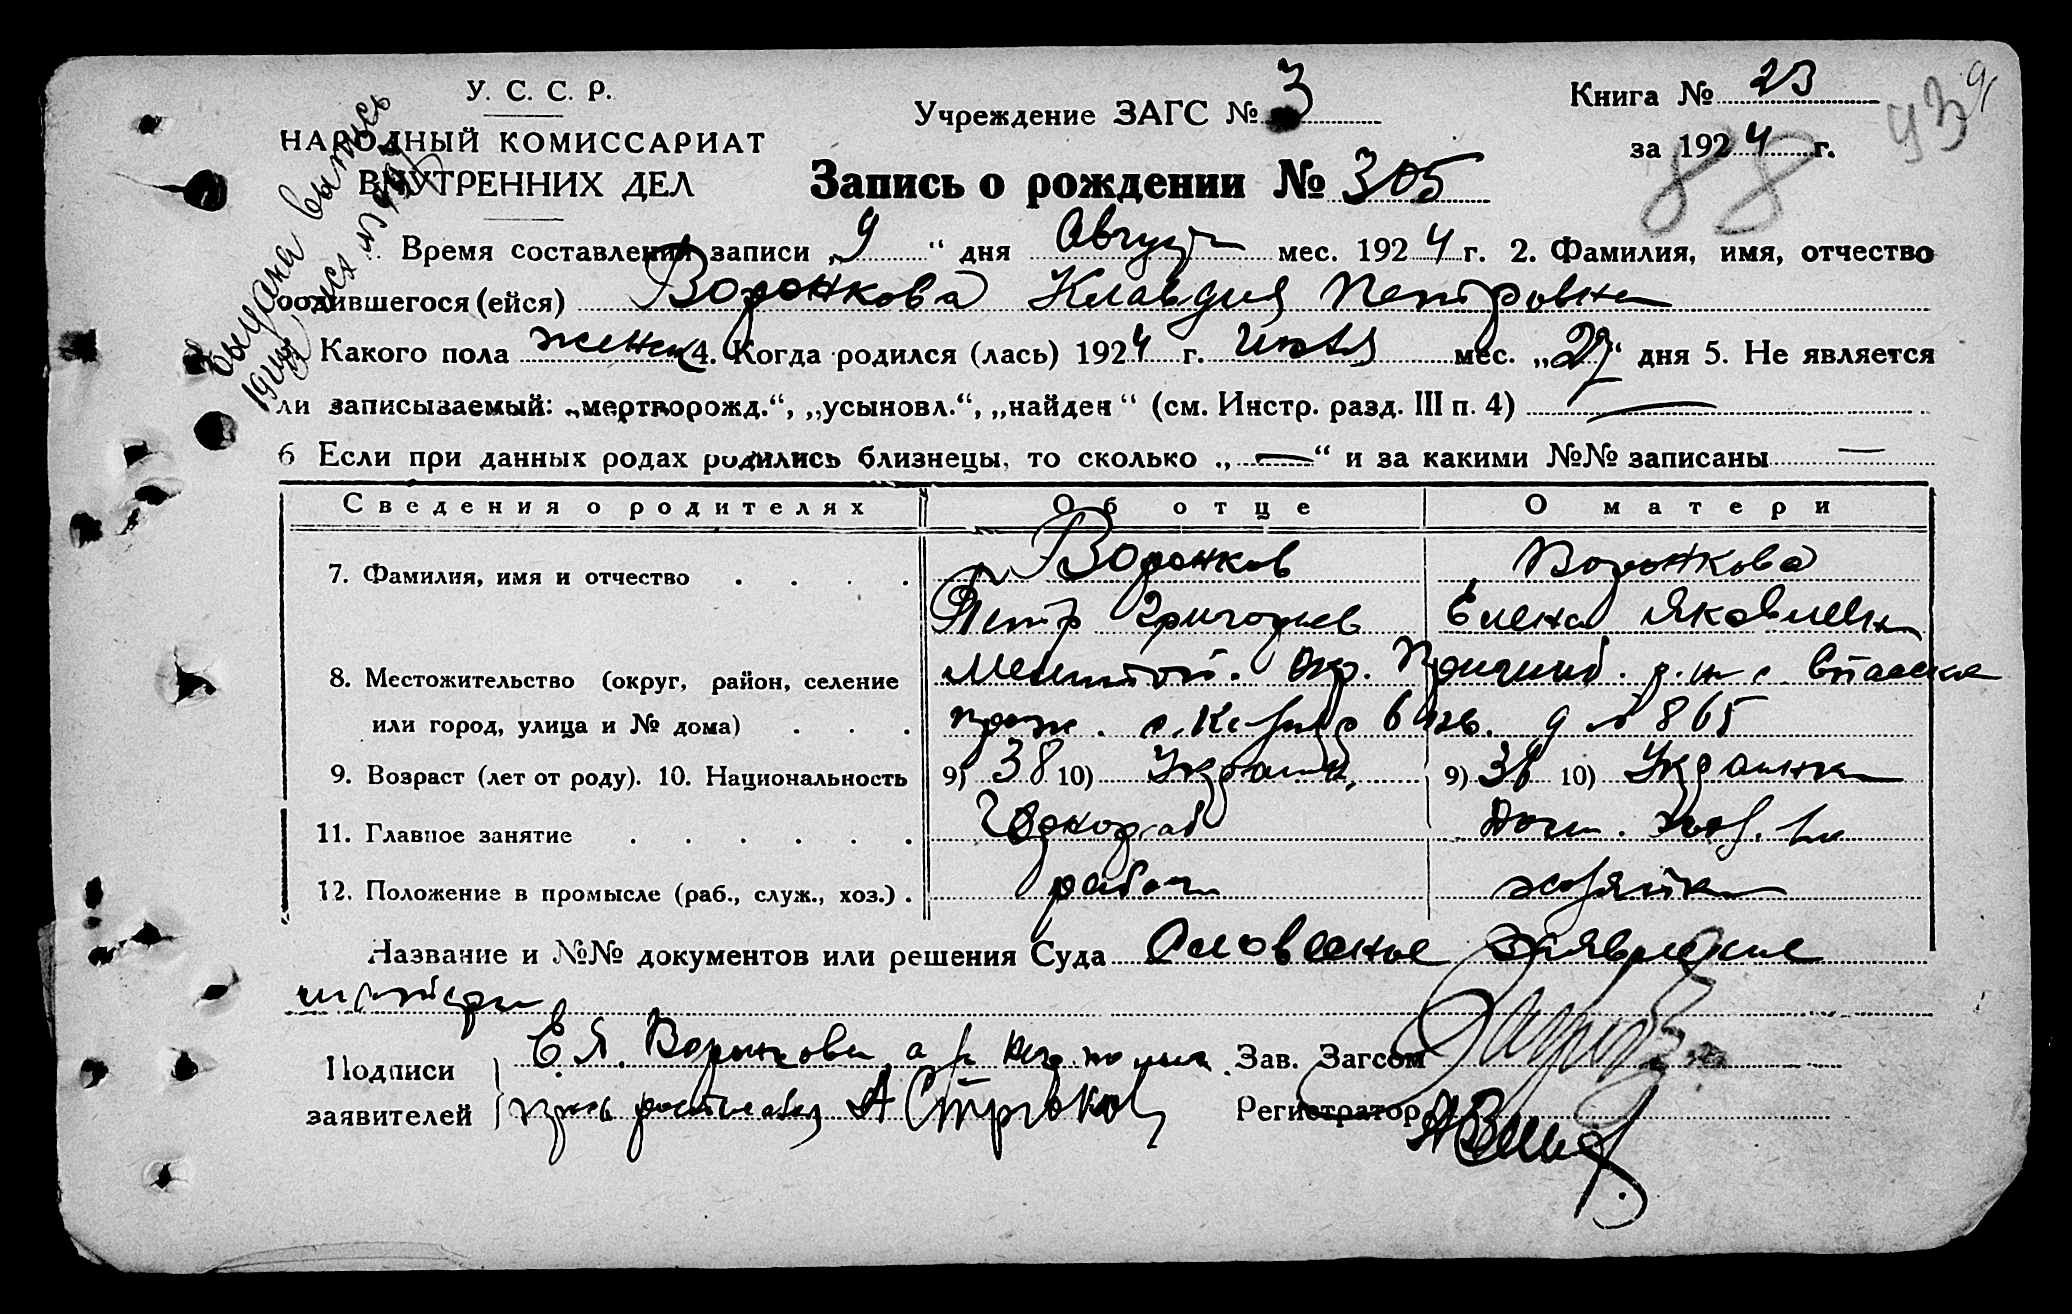 У. С. С. Р.
НАРОДНЫЙ КОМИССАРИАТ
ВНУТРЕННИХ ДЕЛ
Выдана выпись
Учреждение ЗАГС № 3
Книга № 23
за 1924 г.
88
93
91
Запись о рождении № 305
Время составления записи „9“ дня Август мес. 1924 г. 2. Фамилия, имя, отчество
родившегося (ейся) Воронкова Клавдия Петровна
Какого пола женск 4. Когда родился (лась) 1924 г. июля мес. „27“ дня 5. Не является
ли записываемый: „мертворожд.“, „усыновл.“, „найден“ (см. Инстр. разд. III п. 4) —
6 Если при данных родах родились близнецы, то сколько „—“ и за какими №№ записаны —
Сведения о родителях Об отце О матери
7. Фамилия, имя и отчество . . . . Воронков Воронкова
Петр Григорьев Елена Яковлевн
8. Местожительство (округ, район, селение Мелитоп. окр.
или город, улица и № дома) . . . д № 865
9. Возраст (лет от роду). 10. Национальность 9) 38 10) Украин. 9) 36 10) Украинка
11. Главное занятие . . . . . Чернораб Дом. хоз.
12. Положение в промысле (раб., служ., хоз.) . рабоч хозяйка
Название и №№ документов или решения Суда Словесное заявление
матери
Подписи Е. Я. Воронкова а Зав. Загсом
заявителей Регистратор